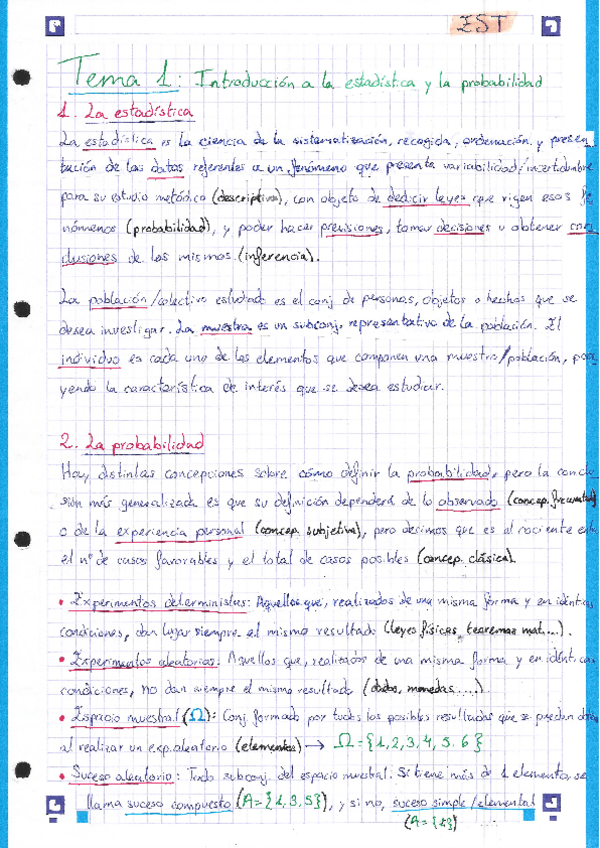 EST
Tema 1: Introducción a la estadística y la probabilidad
1. La estadística
La estadística es la ciencia de la sistematización, recogida, ordenación y presen-
tación de los datos referentes a un fenómeno que presenta variabilidad/incertidumbre
para su estudio metódico (descriptiva), con objeto de dedicir leyes que rigen esos fe
nómenos (probabilidad), y poder hacer previsiones, tomar decisiones u obtener con
clusiones de los mismos (inferencia).
La población/colectivo estudiado es el conj. de personas, objetos o hechos que se
desea investigar. La muestra es un subconj. representativo de la población. El
individuo es cada uno de los elementos que componen una muestra/población, pose
yendo la característica de interés que se desea estudiar.
2. La probabilidad
Hay distintas concepciones sobre cómo definir la probabilidad, pero la conclu
sión más generalizada es que su definición dependerá de lo observado (concep. frecuentista)
o de la experiencia personal (concep. subjetiva), pero decimos que es el cociente entre
el nº de casos favorables y el total de casos posibles (concep. clásica).
• Experimentos deterministas: Aquellos que, realizados de una misma forma y en idénticas
condiciones, dan lugar siempre al mismo resultado (leyes físicas, teoremas mat....).
• Experimentos aleatorios: Aquellos que, realizados de una misma forma y en idénticas
condiciones, no dan siempre el mismo resultado (dados, monedas....).
• Espacio muestral (Ω): Conj. formado por todos los posibles resultados que se puedan obten
al realizar un exp. aleatorio (elementos) → Ω = {1,2,3,4,5,6}
• Suceso aleatorio: Todo subconj. del espacio muestral. Si tiene más de 1 elemento, se
llama suceso compuesto (A = {1,3,5}), y si no, suceso simple/elemental
(A = {1})